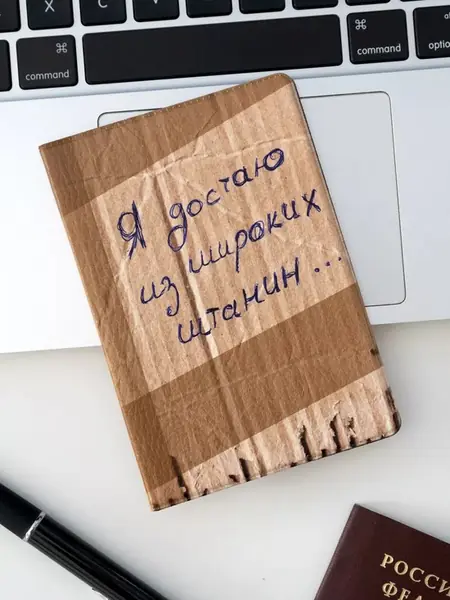 X
C
V
B
N
M
⌘
command
⌘
command
option
Я достаю
из широких
штанин...
РОССИ
ФЕ